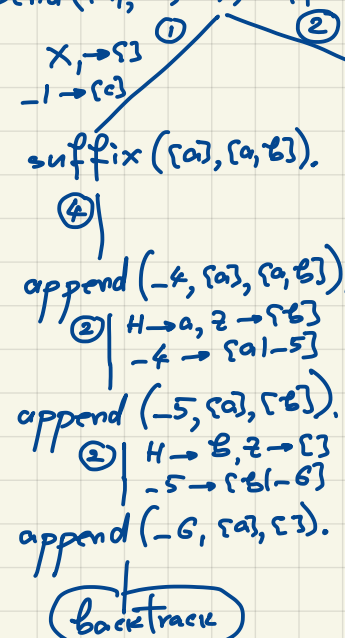 ① ②
X₁→[]
_1→[c]
suffix([a],[a,b]).
④
append(_4,[a],[a,b])
② H→a, Z→[b]
_4→[a|_5]
append(_5,[a],[b]).
② H→b, Z→[]
_5→[b|_6]
append(_6,[a],[]).
backtrack